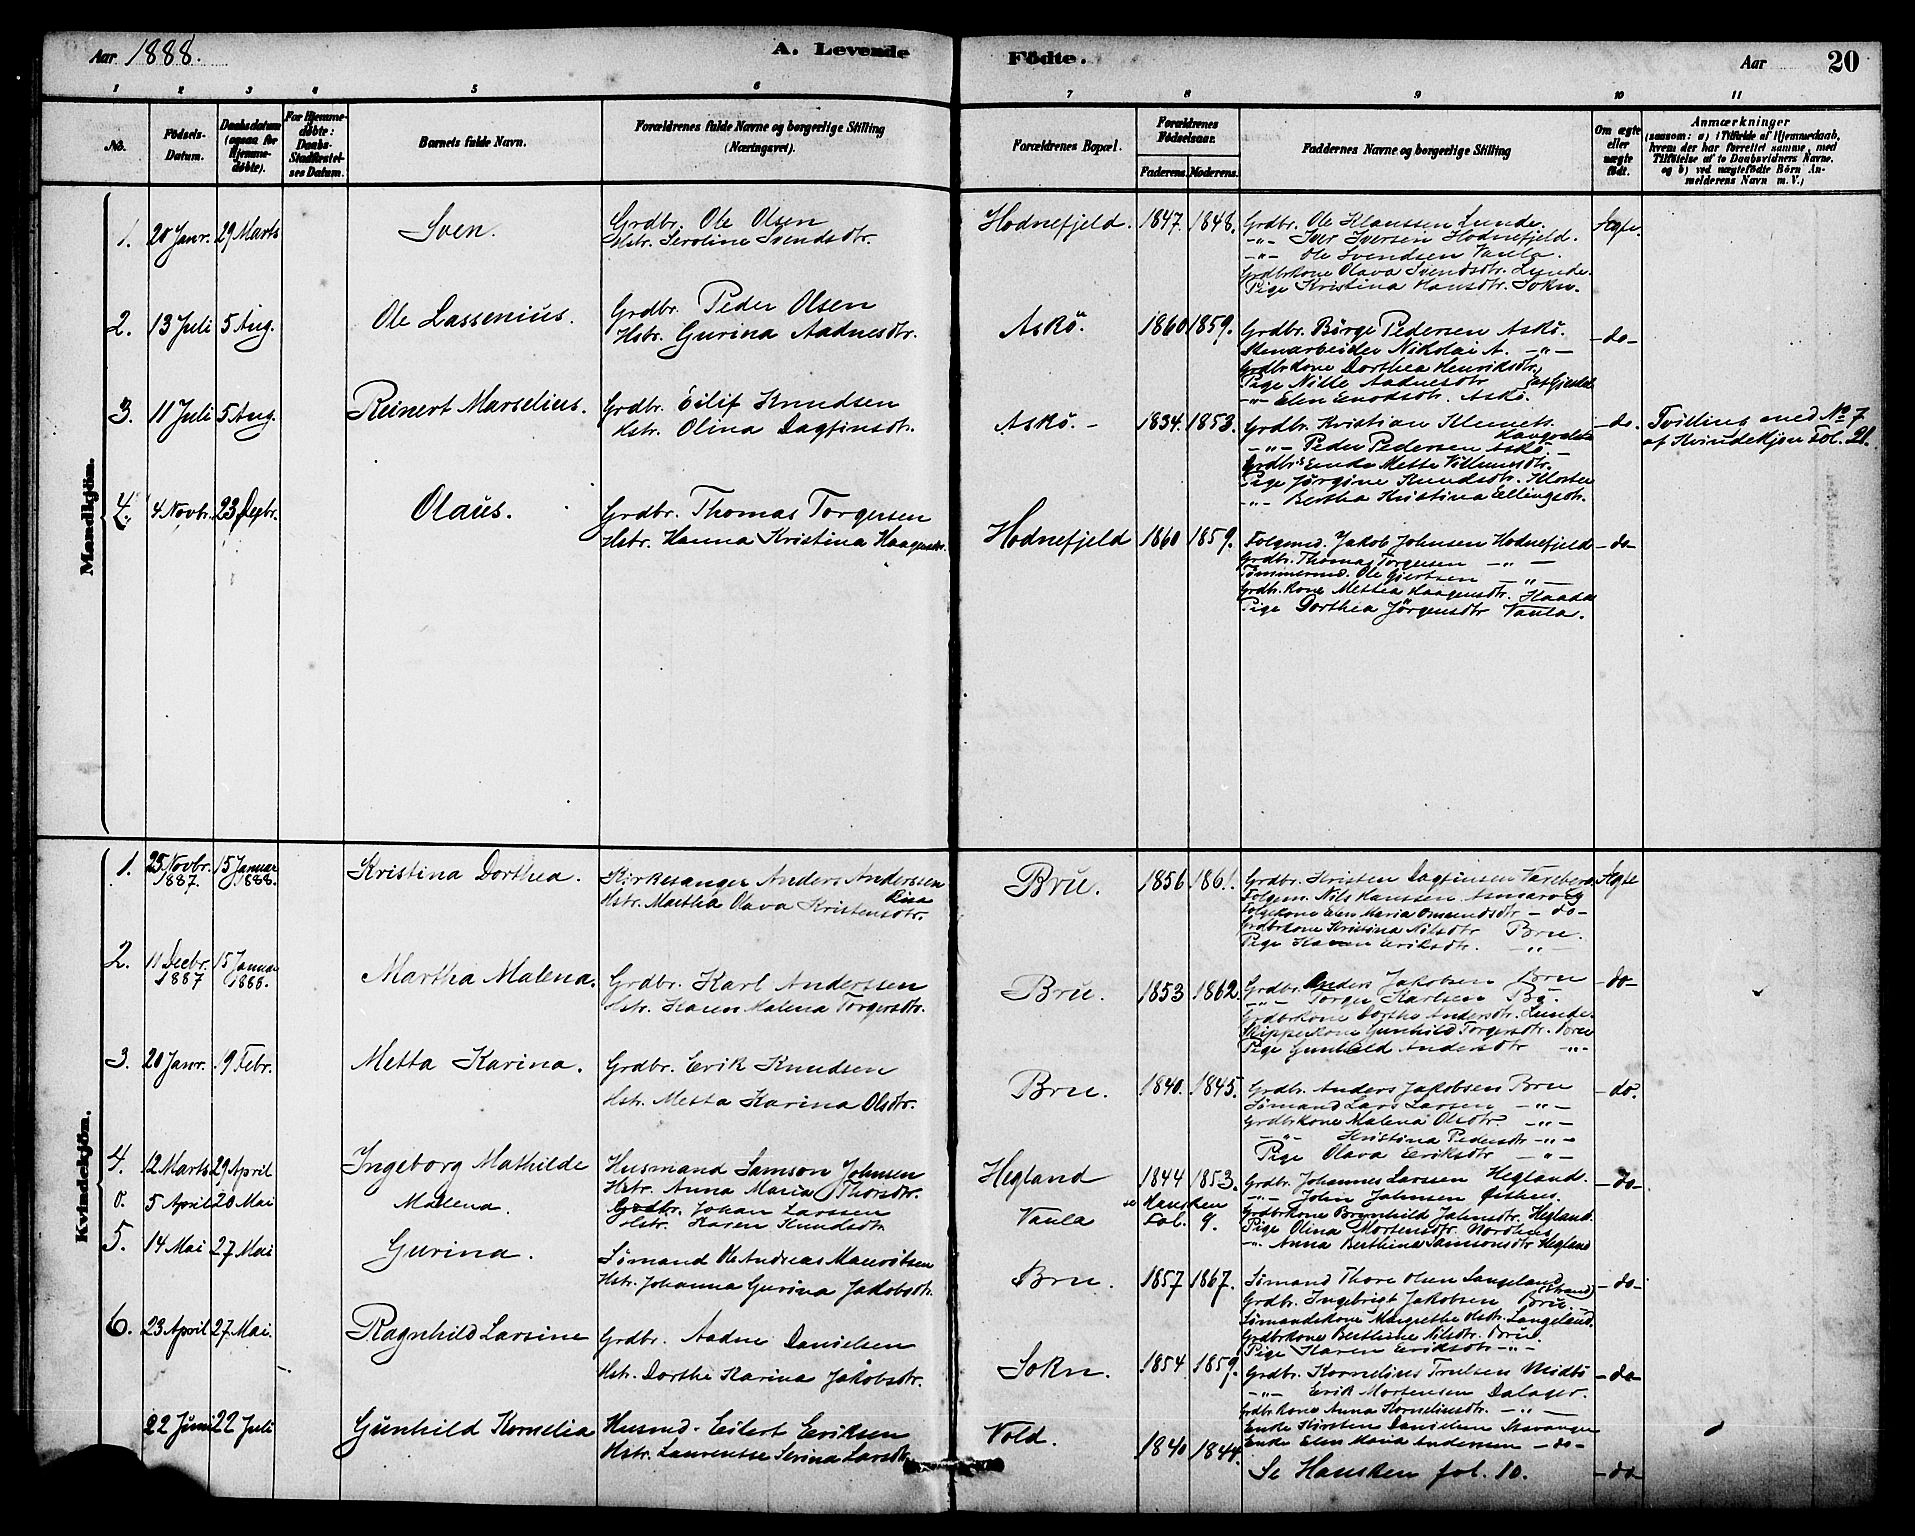 Aar 1888.
A. Levende
Födte.
Aar
20
1 2 3 4 5 6 7 8 9 10 11
No.
Födsels-Datum.
Daabsdatum (ogsaa for Hjemmedöbte).
For Hjemmedöbte: Daabs-Stadfæstelses Datum.
Barnets fulde Navn.
Forældrenes fulde Navne og borgerlige Stilling (Næringsvei).
Forældrenes Bopæl.
Forældrenes Födselsaar.
Faderens. Moderens.
Faddernes Navne og borgerlige Stilling
Om ægte eller uægte födt.
Anmærkninger
(saasom: a) i Tilfælde af Hjemmedaab, hvem der har forrettet samme, med Tilföielse af to Daabsvidners Navne, og b) ved uægtefödte Börn Anmelderens Navn m. V.)
Mandkjön.
1. 20 Janr. 29 Marts
Sven.
Grdbr. Ole Olsen
Hstr. Seroline Svendsdtr.
Hodnefjeld. 1847. 1848.
Grdbr. Ole Klaussen Lunde.
-"- Iver Iversen Hodnefjeld.
-"- Ole Svendsen Vaula.
Grdbrkone Olava Svendsdtr. Lunde.
Pige Kristina Hansdtr. Sokn.
Ægte.
2. 13 Juli 5 Aug.
Ole Lassenius.
Grdbr. Peder Olsen
Hstr. Gurina Aadnesdtr.
Askö. 1860 1859.
Grdbr. Börge Pedersen Askö.
Stenarbeider Nikolai A. -"-
Grdbrkone Dorthea Henriksdtr.
Pige Nille Aadnesdtr
-"- Elen Enodsdtr. Askö.
-do-
3. 11 Juli 5 Aug.
Reinert Marselius.
Grdbr. Eilif Knudsen
Hstr. Olina Dagfinsdtr.
Askö.- 1834. 1853.
Grdbr. Kristian Klemets.
-"- Peder Pedersen Askö -
Grdbrs Enke Mette Villumsdtr.
Pige Jörgine Knudsdtr. Kloster
-"- Bertha Kristina Ellingsdtr.
-do.
Tvilling med No 7
af Kvindekjön Fol. 21.
4. 4 Novbr. 23 Decbr.
Olaus.
Grdbr. Thomas Torgersen
Hstr. Hanna Kristina Haagensdtr.
Hodnefjeld 1860 1859.
Folgemd. Jakob Johnsen Hodnefjeld
Grdbr. Thomas Torgersen -"-
Tömmermd. Ole Gjertsen -"-
Grdbr. kone Mettea Haagensdtr. Haada
Pige Dorthea Jörgensdtr Vaula.
-do-
Kvindekjön.
1. 25 Novbr. 1887. 15 Januar 1888.
Kristina Dorthea.
Kirkesanger Anders Anderssen
Hstr. Martha Olava Kristensdtr.
Bru. 1856 1861.
Grdbr. Kristen Dagfinsen Fareberg
Folgem. Nils Hanssen Asmarvig
Folgekone Elen Maria Omundsdtr -do-
Grdbrkone Kristina Nilsdtr Bru.
Pige Karen Eriksdtr. -"-
Ægte
2. 11 Decbr. 1887 15 Januar 1888.
Martha Malena.
Grdbr. Karl Anderssen
Hstr. Karen Malena Torgersdtr.
Bru. 1853 1862
Grdbr. Anders Jakobsen Bru
-"- Torger Karlsen Bö.
Grdbrkone Dorthe Andersdtr. Lunde.
Skipperkone Gunhild Torgersdtr. Bru
Pige Gunhild Andersdtr -"-
-do-
3. 20 Janr. 9 Febr.
Metta Karina.
Grdbr. Erik Knudsen
Hstr. Metta Karina Olsdtr.
Bru. 1840. 1845.
Grdbr. Anders Jakobsen Bru
Sømand Lars Larsen -"-
Grdbrkone Malena Olsdtr -"-
-"- Kristina Pedersdtr -"-
Pige Olava Eriksdtr -"-
-do.
4. 12 Marts 29 April
Ingeborg Mathilde
Husmand Samson Johnsen
Hstr. Anna Maria Thorsdtr.
Hegland 1844 1853.
Grdbr. Johannes Larssen Hegland.
-"- John Johnsen Østhus.
Grdbrkone Brynhild Johnsdtr. Hegland
Pige Olina Mortensdtr. Nordhus
-"- Anna Berthina Samsonsdtr Hegland
-do-
0. 5 April 20 Mai
Malena.
Grdbr. Johan Larssen
Hstr. Karen Knudsdtr
Vaula
se Hausken Fol. 9.
5. 14 Mai 27 Mai
Gurina.
Sømand Ole Andreas Mauritsen
Hstr. Johanna Gurina Jakobsdtr.
Bru. 1857 1867.
Sømand Thore Olsen Langeland (Strand)
Grdbr. Ingebrigt Jakobsen Bru -
Sømandskone Margrethe Olsdtr. Langeland.
Grdbrkone Berthine Nilsdtr. Bru.
Pige Karen Eriksdtr -"-
-do-
6. 23 April 27. Mai.
Ragnhild Larsine
Grdbr. Aadne Danielsen
Hstr. Dorthe Karina Jakobsdtr.
Sokn. 1854. 1859.
Grdbr. Kornelius Truelsen Midtö
-"- Erik Mortensen Dalager.
Grdbrkone Anna Korneliusdtr. -"-
Enke Kirsten Danielsen Stavanger
Enke Elen Maria Andersen -do-
-do-
22 Juni 22 Juli
Gunhild Kornelia
Husmd. Eilert Eriksen
Hstr. Laurentse Serina Larsdtr.
Vold. 1840 1844.
Se Hausken fol. 10.
-do